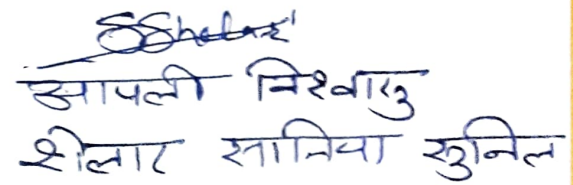 SShelar
आपली विश्वासु
शेलार सानिया सुनिल